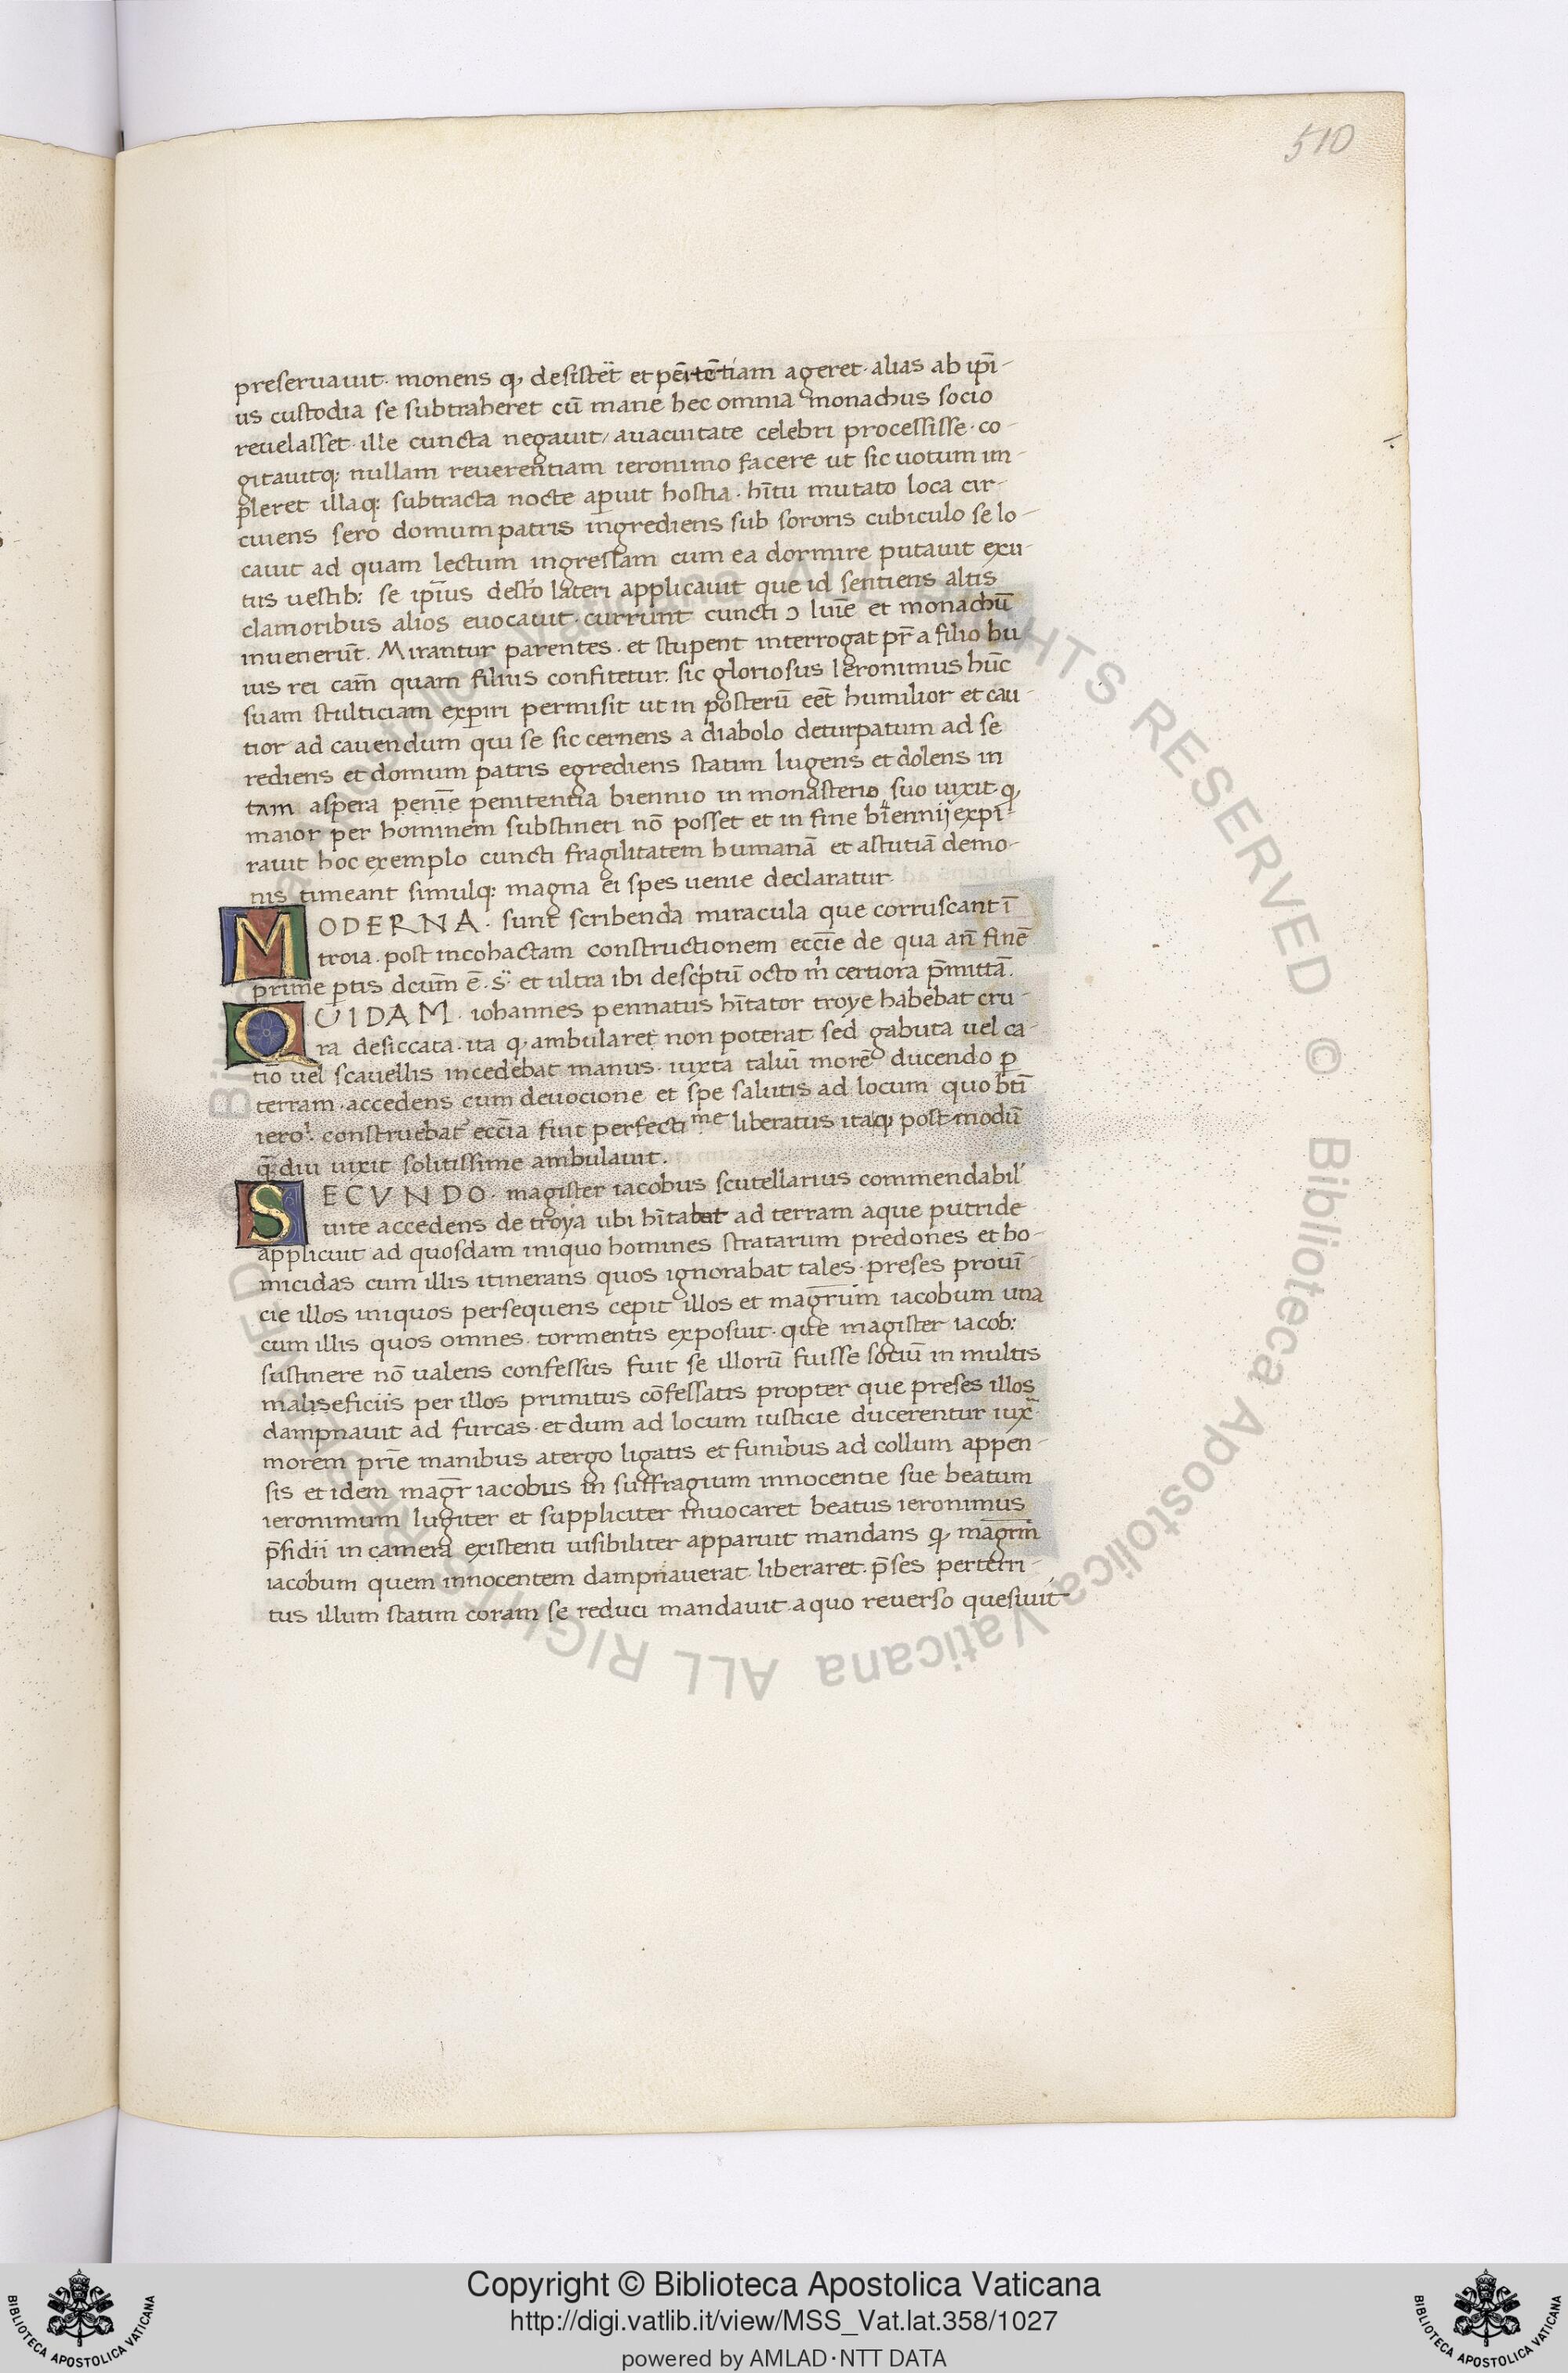 510
preseruauit. monens q, desistēt et pēitētiam ageret. alias ab ipi-
us custodia se subtraheret cū mane hec omnia monachus socio
reuelasset. ille cuncta negauit/ auacuitate celebri processisse. co-
gitauitq; nullam reuerentiam ieronimo facere ut sic uotum im-
pleret illaq; subtracta nocte aperuit hostia. hītu mutato loca cir-
cuiens sero domum patris ingrediens sub sororis cubiculo se lo-
cauit ad quam lectum ingressam cum ea dormire putauit exu-
tus uestib; se ipīus dextō lateri applicauit que id sentiens altis
clamoribus alios euocauit. currunt cuncti ɔ luīe et monachū
inuenerūt. Mirantur parentes. et stupent interrogat pr̄ a filio hu
ius rei cam̄ quam filius confitetur. sic gloriosus Ieronimus hūc
suam stulticiam experiri permisit ut in posterū eēt humilior et cau-
tior ad cauendum qui se sic cernens a diabolo deturpatum ad se
rediens et domum patris egrediens statim lugens et dolens in
tam aspera penīe penitentia biennio in monasterio suo uixit. q,
maior per hominem substineri nō posset et in fine biennij expi-
rauit hoc exemplo cuncti fragilitatem humanā et astutiā demo-
nis timeant simulq; magna ei spes uenie declaratur
MODERNA. sunt scribenda miracula que corruscant ī
troia. post incohactam constructionem eccīe de qua an̄ finē
prime ptis dcum̄ ē. s. et ultra ibi descptū octo m̄ certiora p̄mittā.
QUIDAM. iohannes pennatus hītator troye habebat cru-
ra desiccata. ita q. ambularet non poterat sed gabuta uel ca-
tio uel scauellis incedebat manus. iuxta taluī morē ducendo p
terram. accedens cum deuocione et spe salutis ad locum quo btī
iero. construebat eccīa fuit perfecti me liberatus itaq, post modū
q̄ diu uixit solitissime ambulauit.
SECVNDO. magister iacobus scutellarius commendabil
uite accedens de troya ubi hītabat ad terram aque putride
applicuit ad quosdam iniquo homines stratarum predones et ho-
micidas cum illis itinerans quos ignorabat tales. preses prouī-
cie illos iniquos persequens cepit illos et magr̄um iacobum una
cum illis quos omnes. tormentis exposuit. que magister iacob:
sustinere nō ualens confessus fuit se illorū fuisse sotiū in multis
maliseficiis per illos primitus cōfessatis propter que preses illos
dampnauit ad furcas. et dum ad locum iusticie ducerentur iux̄
morem prīe manibus atergo ligatis et funibus ad collum appen-
sis et idem magr̄ iacobus in suffragium innocentie sue beatum
ieronimum lugiter et suppliciter inuocaret beatus ieronimus
p̄sidii in camera existenti uisibiliter apparuit mandans q, magrm̄
iacobum quem innocentem dampnauerat. liberaret. p̄ses perterri-
tus illum statim coram se reduci mandauit. a quo reuerso quesiuit
© Biblioteca Apostolica Vaticana ALL RIGHTS RESERVED
© Biblioteca Apostolica Vaticana ALL RIGHTS RESERVED
BIBLIOTECA APOSTOLICA VATICANA
Copyright © Biblioteca Apostolica Vaticana
http://digi.vatlib.it/view/MSS_Vat.lat.358/1027
powered by AMLAD·NTT DATA
BIBLIOTECA APOSTOLICA VATICANA